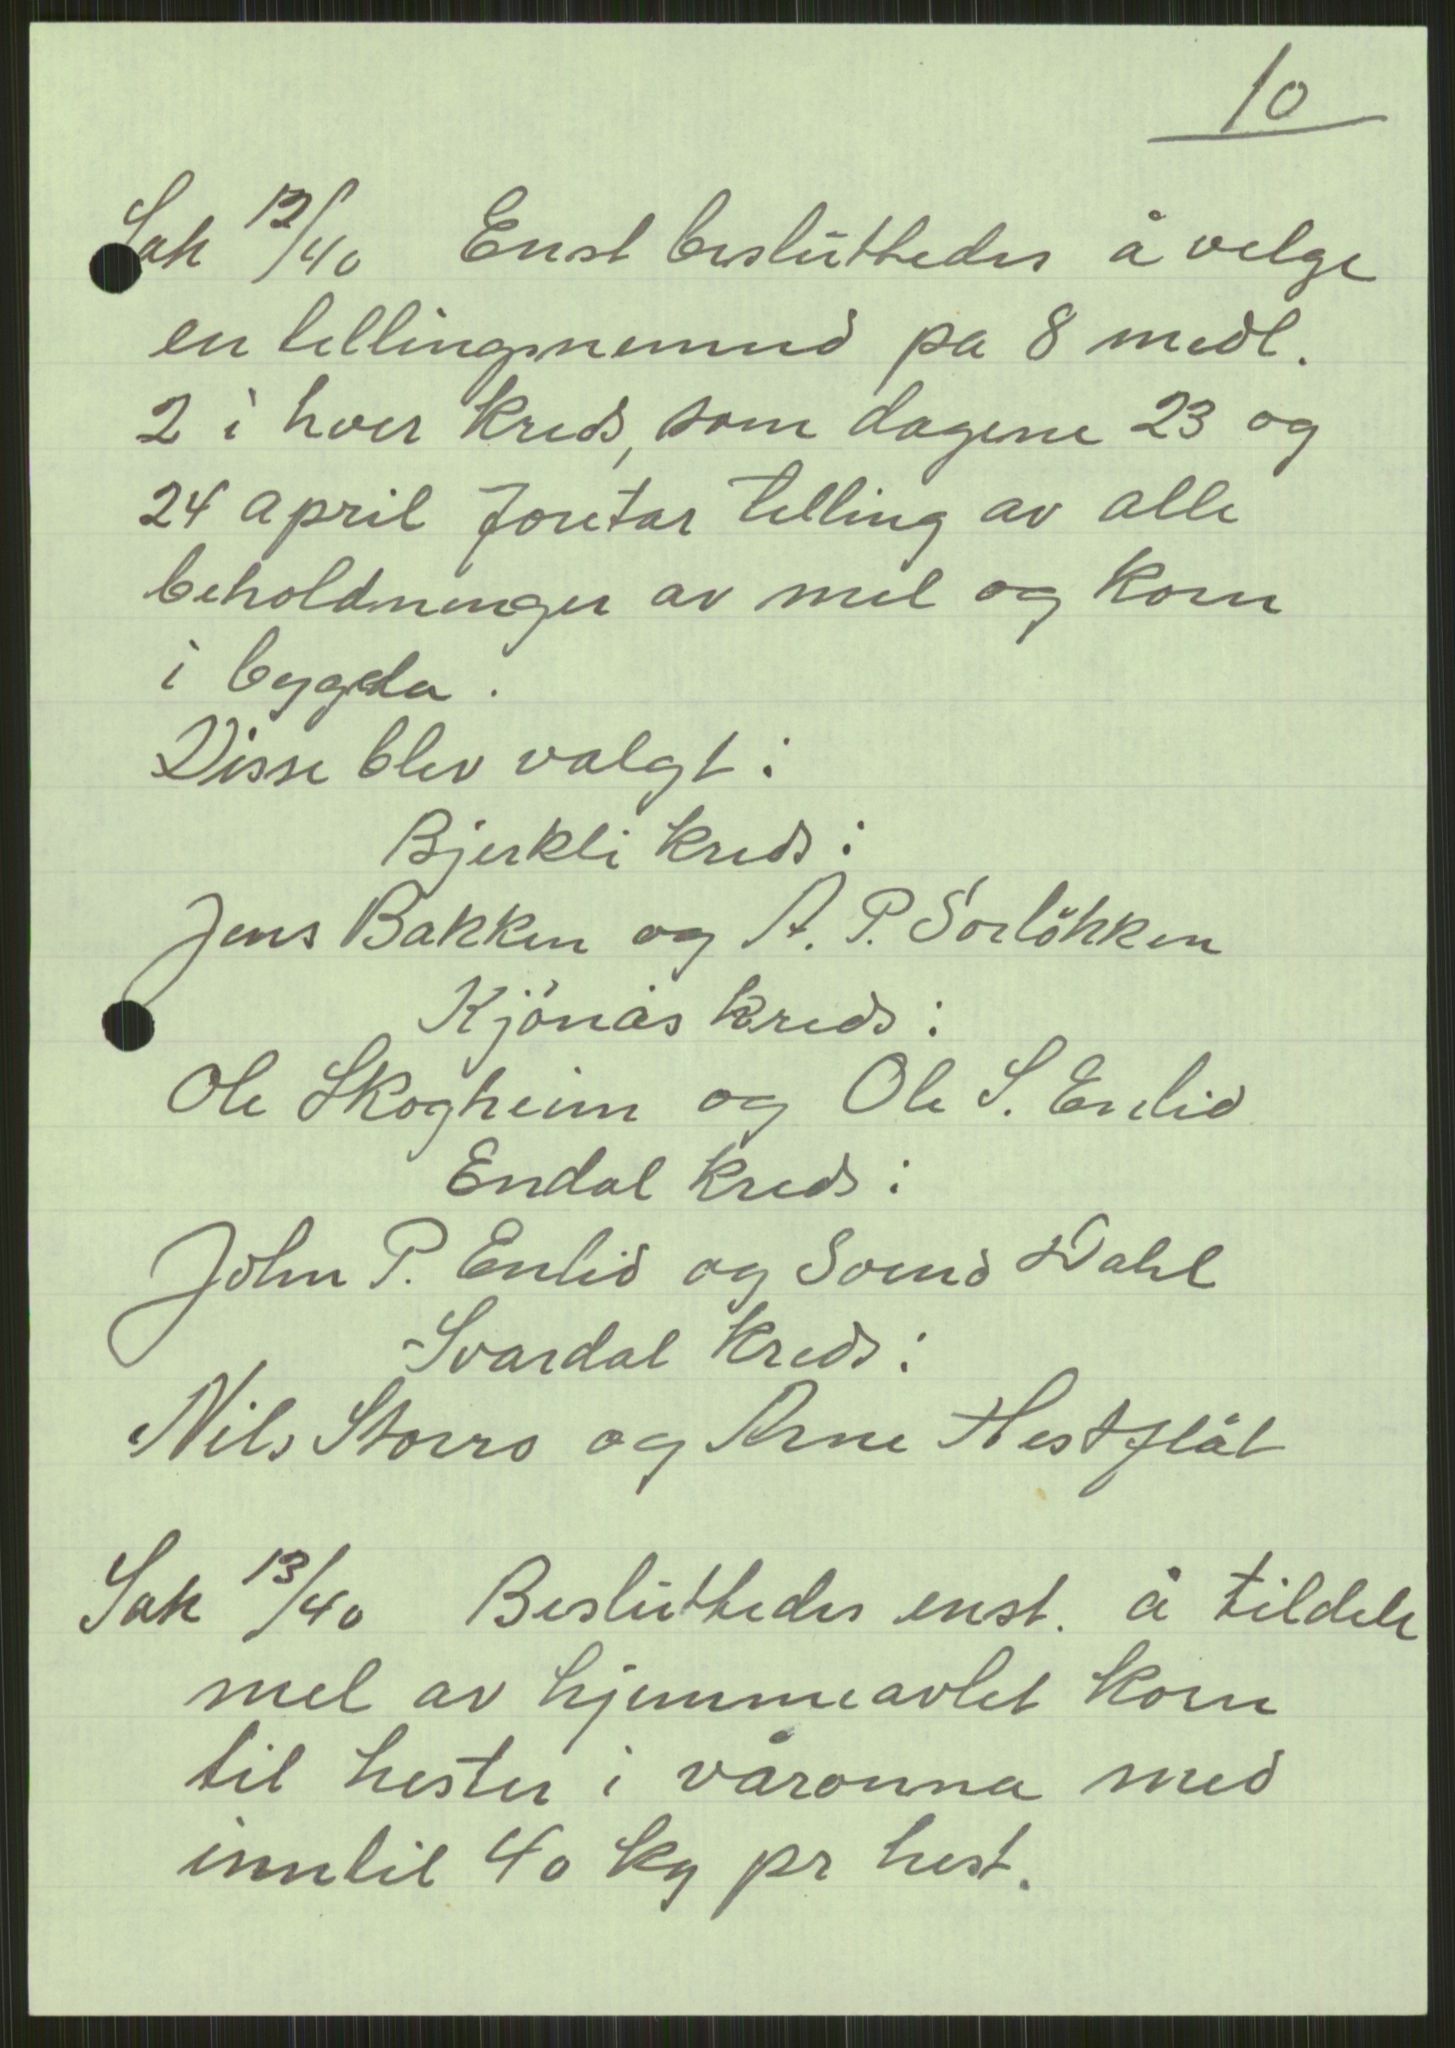 10
Sak 12/40 Enst besluttedes å velge
en tellingsnemnd pa 8 medl.
2 i hver kreds, som dagene 23 og
24 april foretar telling av alle
beholdninger av mel og korn
i bygda.
Disse blev valgt:
Bjerkli kreds:
Jens Bakken og A. P. Sörlökken
Kjönås kreds:
Ole Skogheim og Ole S. Enlid
Endal kreds:
John P. Enlid og Svend Dahl
Svardal kreds:
Nils Storro og Arne Hestflåt
Sak 13/40 Besluttedes enst. å tildele
mel av hjemmeavlet korn
til hester i våronna med
inntil 40 kg pr hest.